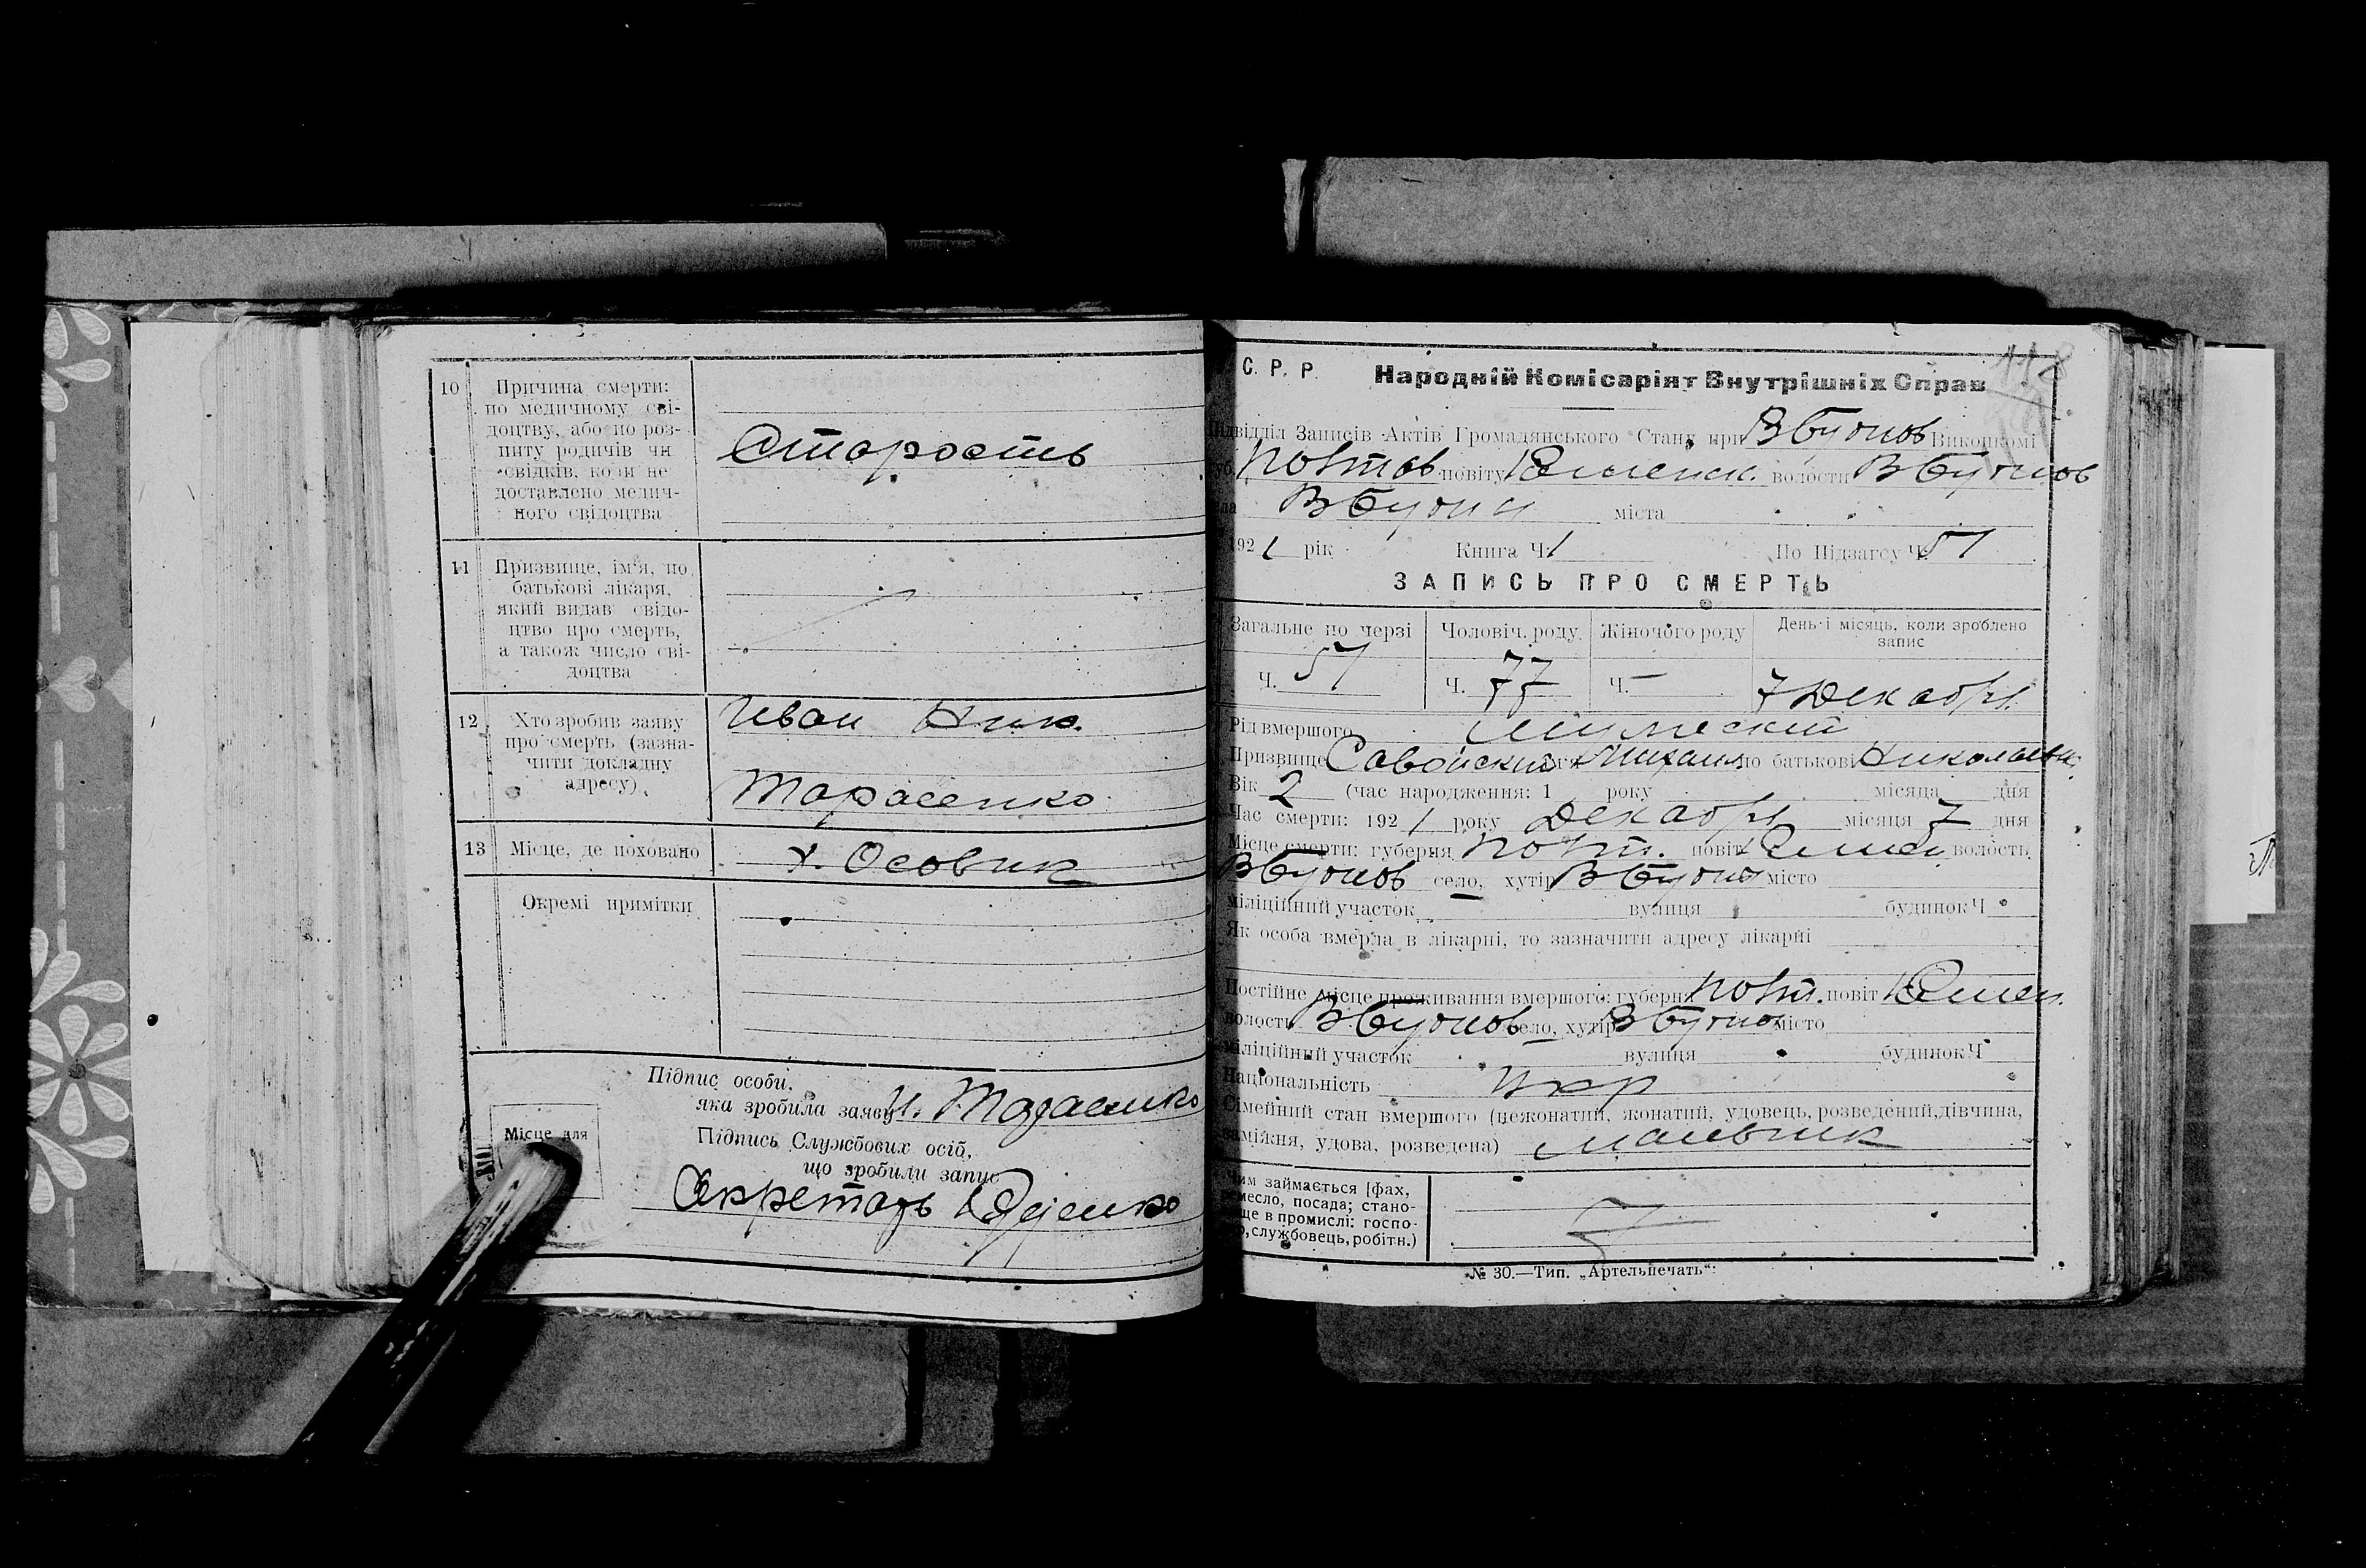 10 Причина смерти:
по медичному сві-
доцтву, або по роз-
питу родичів чи
свідків, коли не
доставлено медич-
ного свідоцтва
Старость
11 Призвище, ім'я, по
батькові лікаря,
який видав свідо-
цтво про смерть,
а також число сві-
доцтва
12 Хто зробив заяву
про смерть (зазна-
чити докладну
адресу)
Иван Ник.
Тарасенко
13 Місце, де поховано
х. Осовик
Окремі примітки
Підпис особи,
яка зробила заяву И. Тарасенко
Місце для
Підпись Службових осіб,
що зробили запис
Секретарь
118
С. Р. Р. Народній Комісаріят Внутрішніх Справ
Підвідділ Записів Актів Громадянського Стану при Виконкомі
Полтав. повіту волости
міста
1921 рік Книга Ч. 1 По Підзагсу Ч. 51
ЗАПИСЬ ПРО СМЕРТЬ
Загальне по черзі Чоловіч. роду Жіночого роду День і місяць, коли зроблено
запис
Ч. 51 Ч. 77 Ч. — 7 Декабря
Рід вмершого Мужеский
Призвище Савойский Михаил по батькові Николаев.
Вік 2 (час народження: 1 року місяця дня
Час смерти: 1921 року Декабря місяця 7 дня
Місце смерти: губерня Полт. повіт волость
село, хутір місто
міліційний участок вулиця будинок Ч
Як особа вмерла в лікарні, то зазначити адресу лікарні
Постійне місце проживання вмершого: губерн Полт. повіт
волость село, хутір місто
міліційний участок вулиця будинок Ч
Національність Укр
Сімейний стан вмершого (нежонатий, жонатий, удовець, розведений, дівчина,
заміжня, удова, розведена) мальчик
Чим займається [фах,
ремесло, посада; стано-
вище в промислі: госпо-
службовець, робітн.)
№ 30.—Тип. „Артельпечать“.